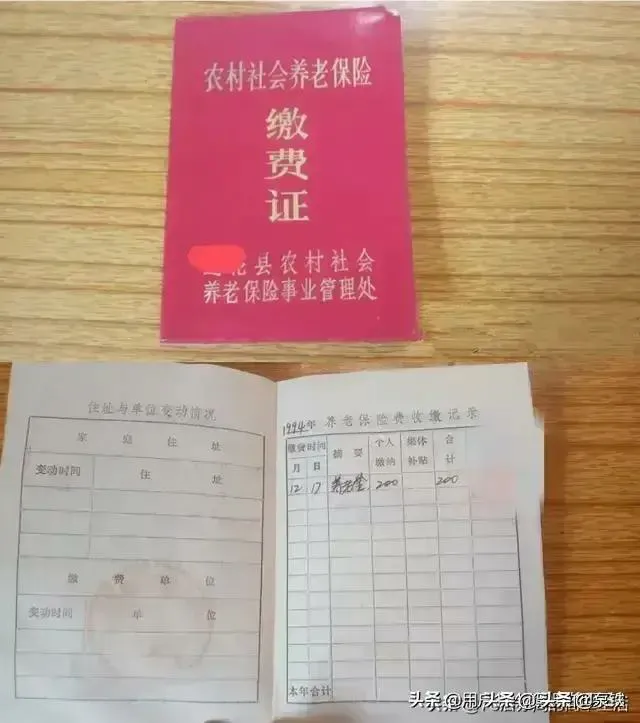 农村社会养老保险
缴费证
县农村社会
养老保险事业管理处
住址与单位变动情况
家庭住址
变动时间 住址
缴费单位
变动时间 单位
1994年 养老保险费收缴记录
缴费时间 摘要 个人缴纳 集体补贴 合计
月 日
12 17 养老金 200 200
本年合计
头条 @用户
头条 @
头条 @泵铁